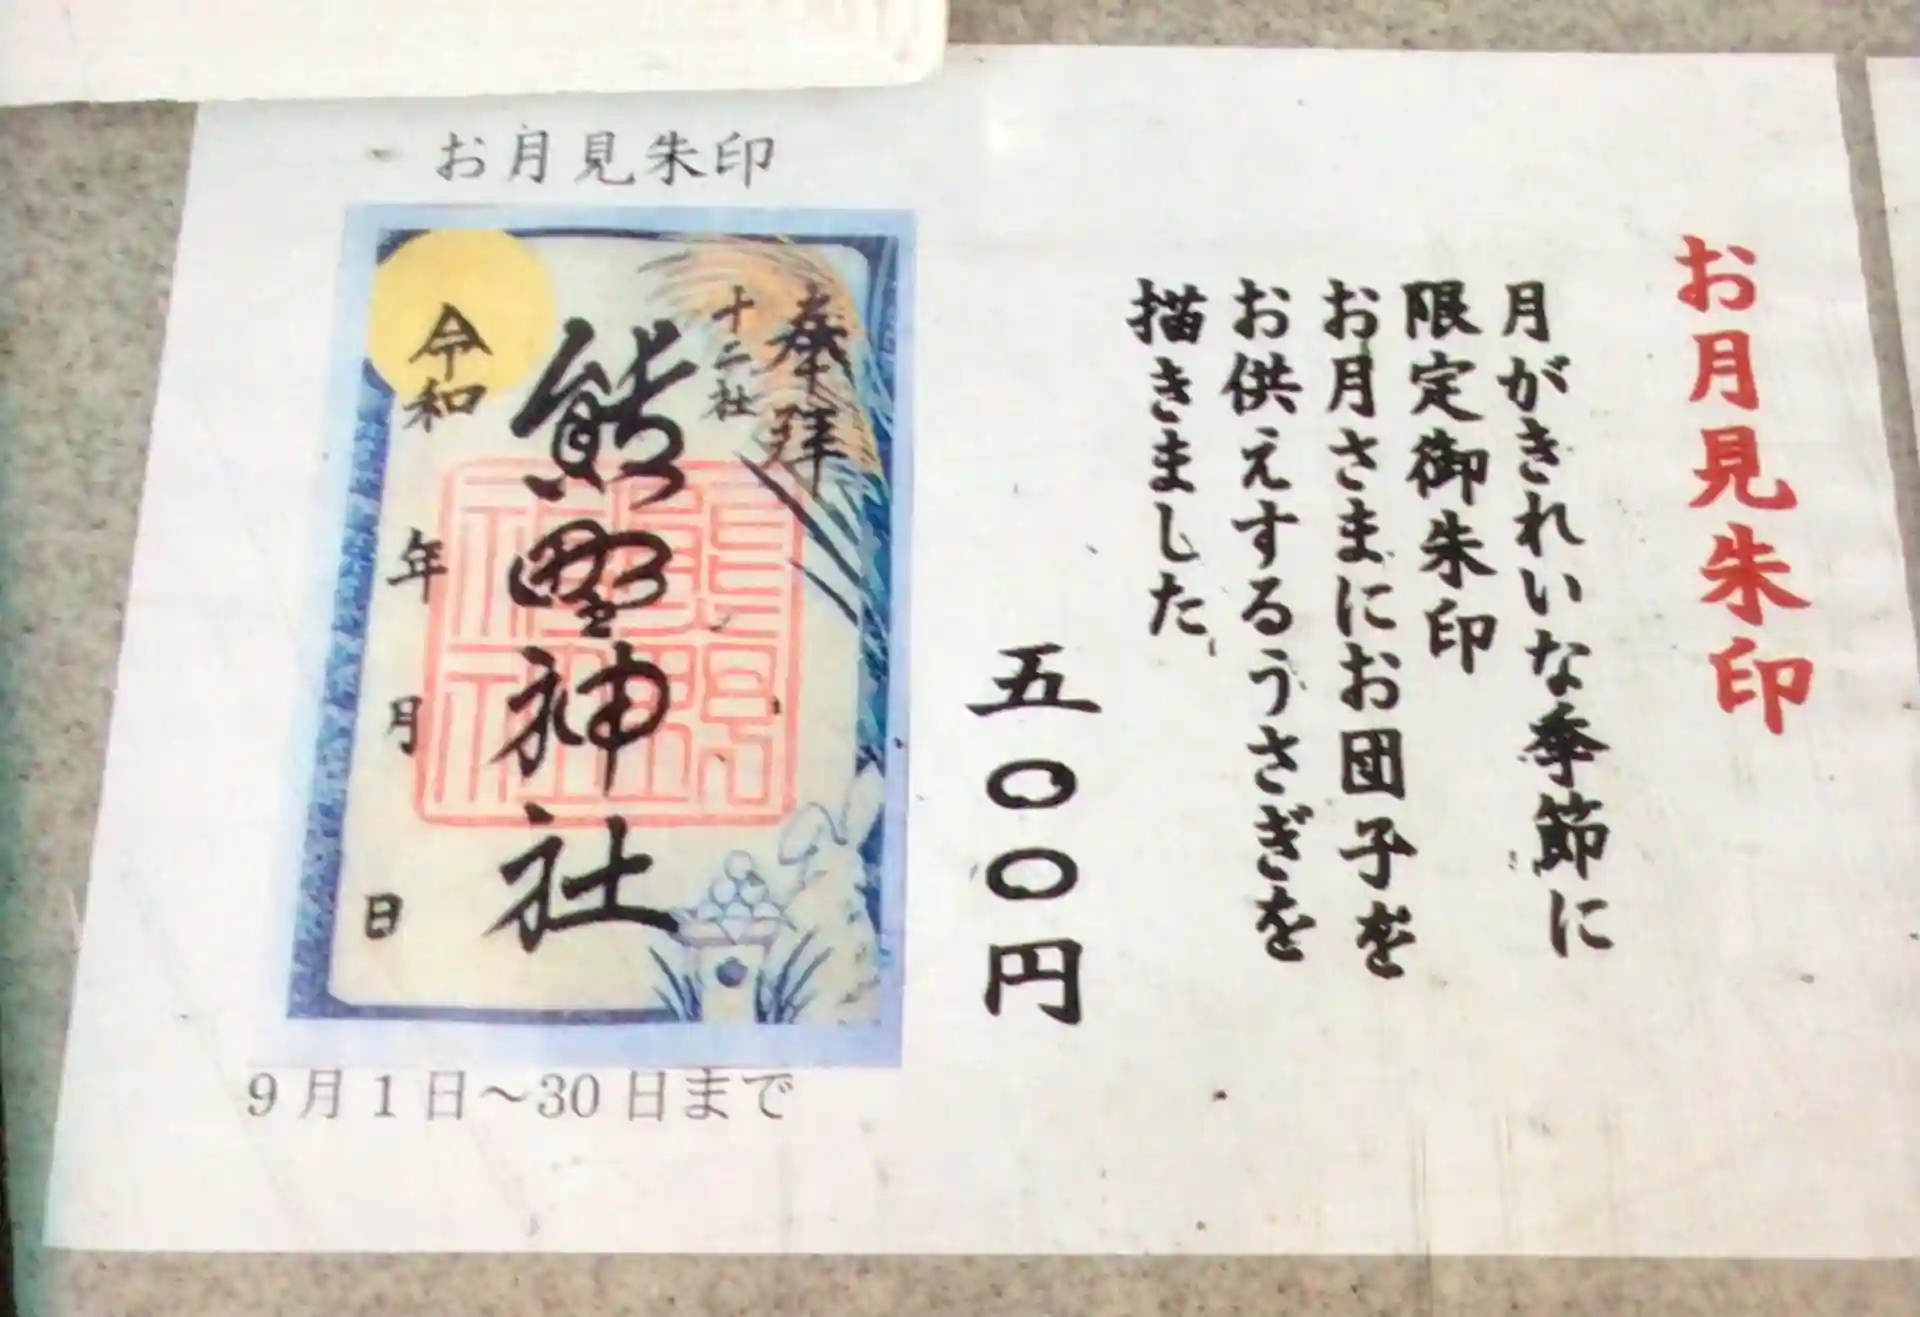 お月見朱印
月がきれいな季節に
限定御朱印
お月さまにお団子を
お供えするうさぎを
描きました
五〇〇円
お月見朱印
奉拝
十二社
熊野神社
令和
年
月
日
9月1日～30日まで